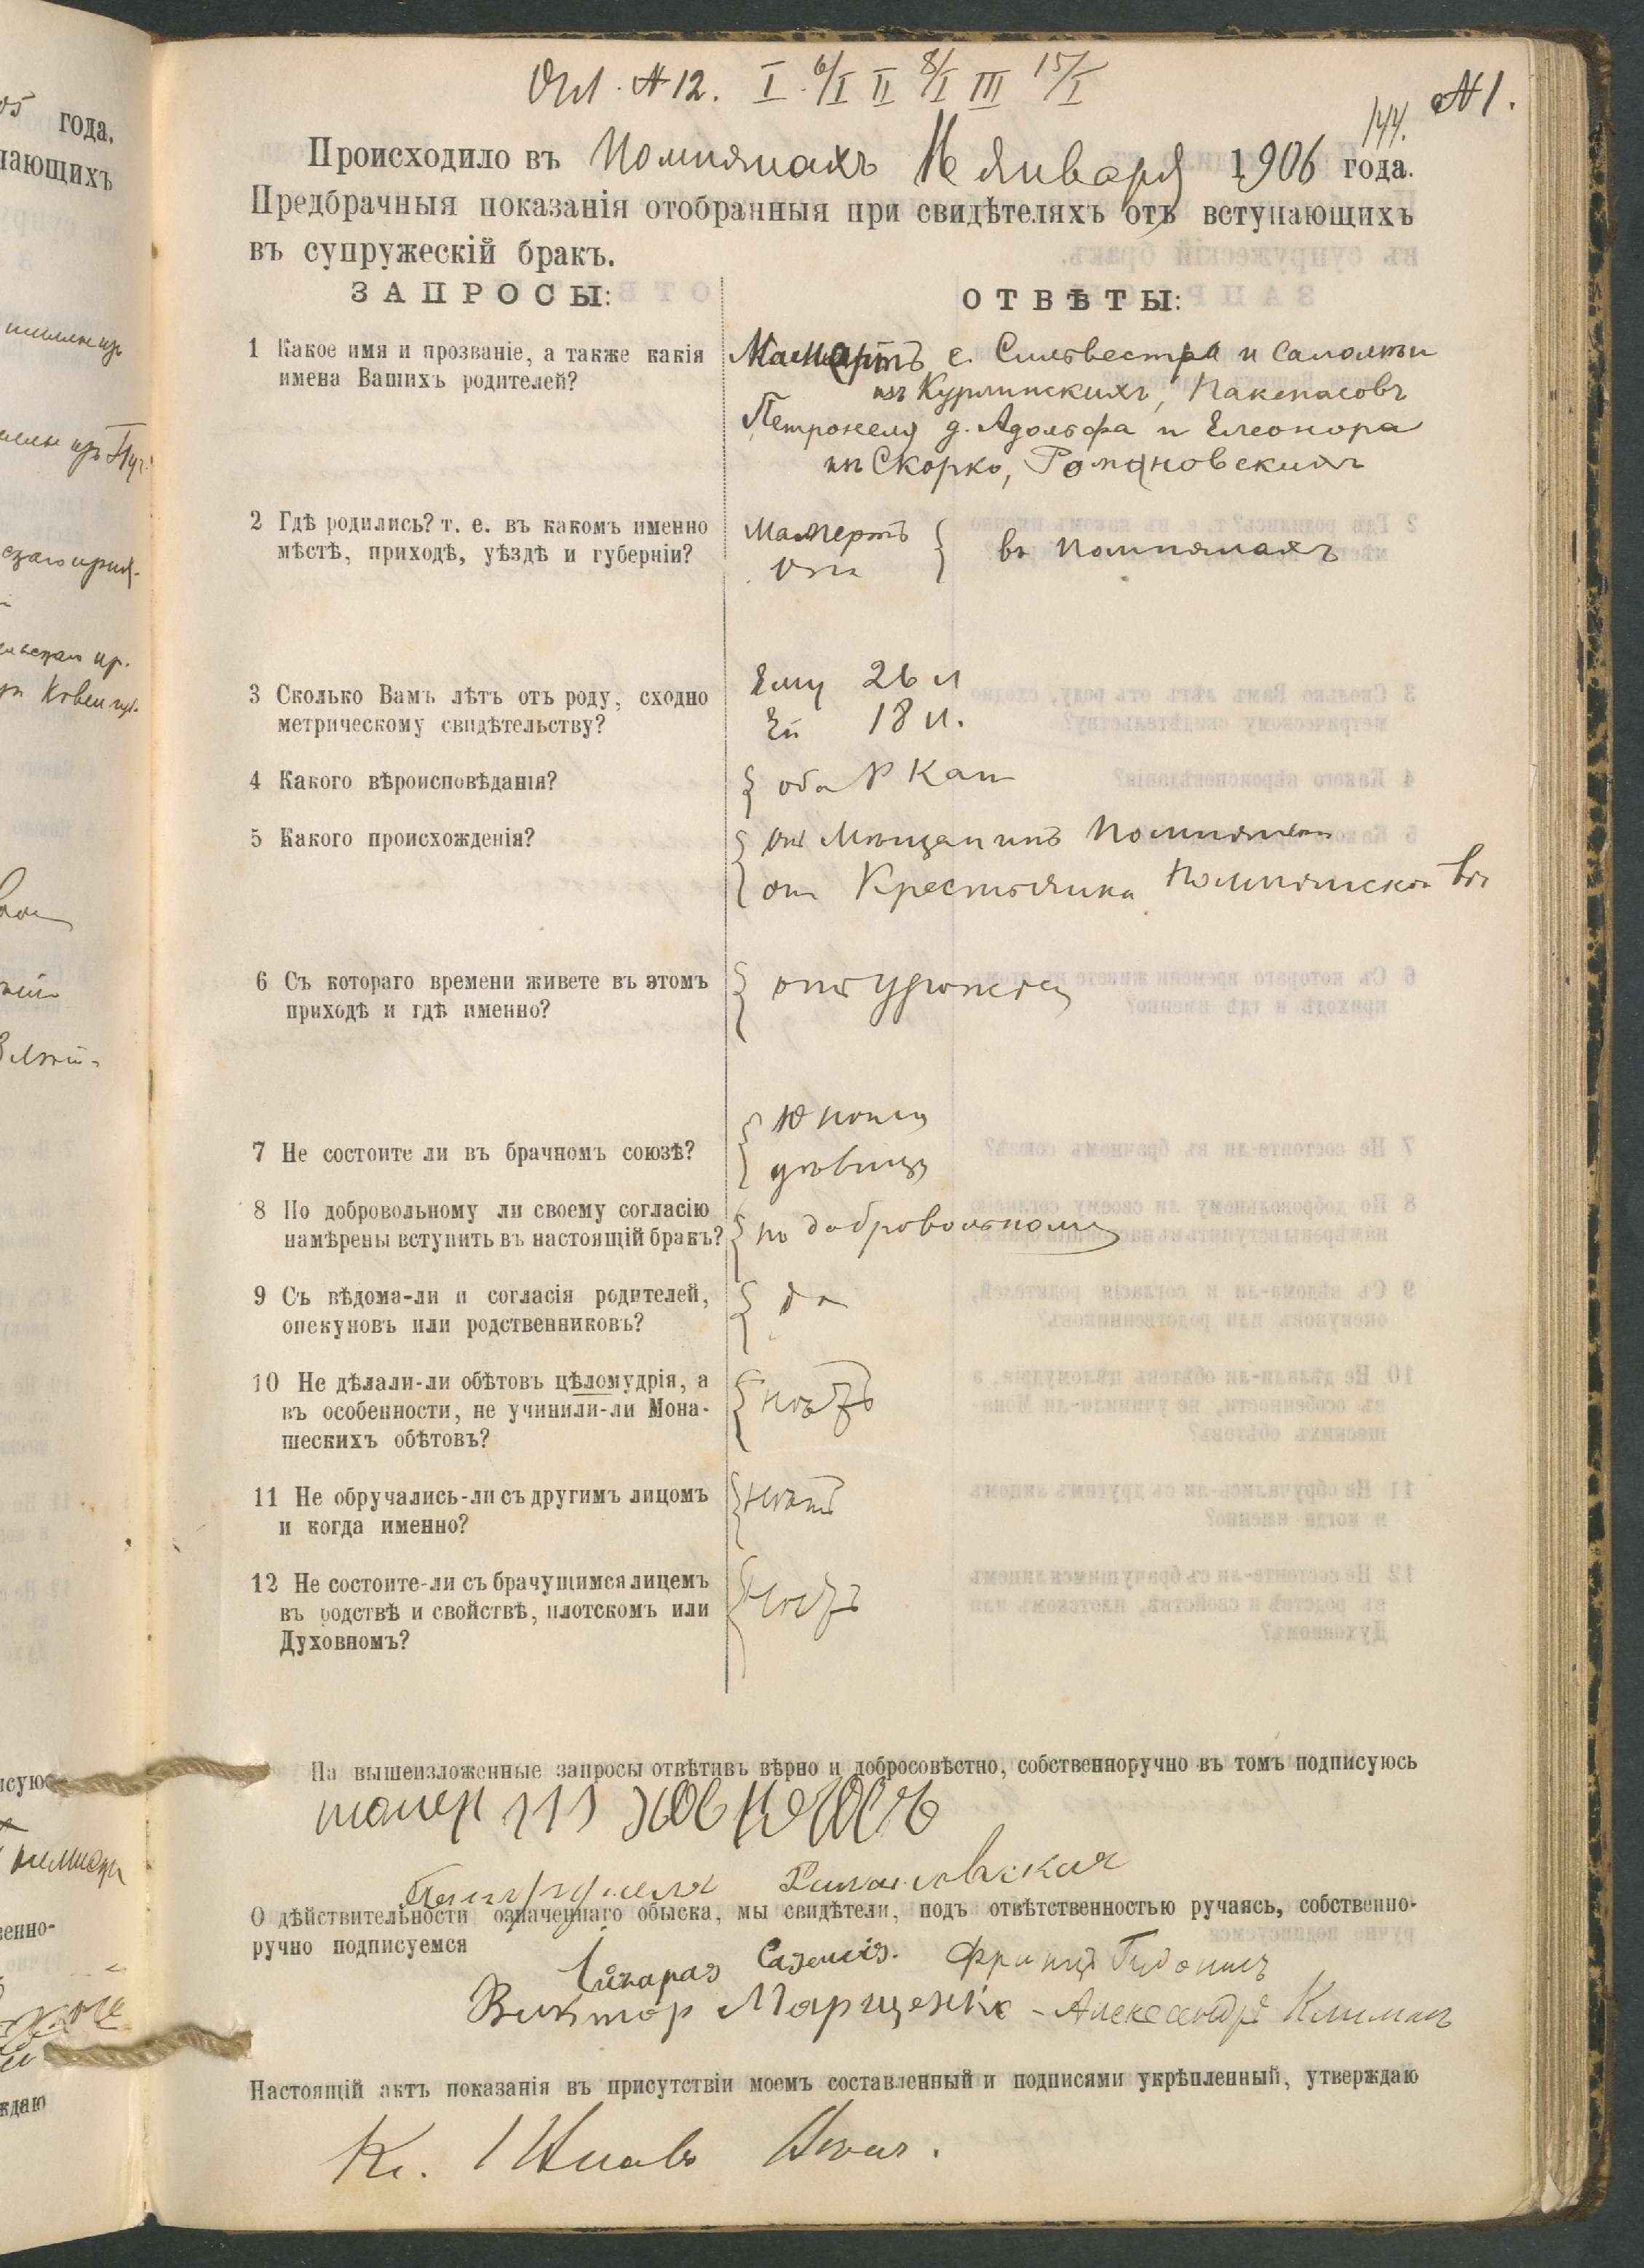 № 12. I 6/I II 8/I III 15/I
№ 1.
144.
Происходило въ Помпянахъ 16 Января 1906 года.
Предбрачныя показанія отобранныя при свидѣтеляхъ отъ вступающихъ
въ супружескій бракъ.
ЗАПРОСЫ:
ОТВѢТЫ:
1 Какое имя и прозваніе, а также какія
имена Вашихъ родителей?
Мамертъ с. Сильвестра и Саломеи
изъ Курлинскихъ,
Петронеля д. Адольфа и Елеонора
изъ Скорко, Романовскихъ
2 Гдѣ родились? т. е. въ какомъ именно
мѣстѣ, приходѣ, уѣздѣ и губерніи?
Мамертъ
Она
въ Помпянахъ
3 Сколько Вамъ лѣтъ отъ роду, сходно
метрическому свидѣтельству?
Ему 26 л
Ей 18 л.
4 Какого вѣроисповѣданія?
оба Р Кат
5 Какого происхожденія?
онъ Мѣщанинъ
она Крестьянка Помпянской Вол
6 Съ котораго времени живете въ этомъ
приходѣ и гдѣ именно?
отъ рожденія
7 Не состоите ли въ брачномъ союзѣ?
Юноша
дѣвица
8 По добровольному ли своему согласію
намѣрены вступить въ настоящій бракъ?
по добровольному
9 Съ вѣдома-ли и согласія родителей,
опекуновъ или родственниковъ?
да
10 Не дѣлали-ли обѣтовъ цѣломудрія, а
въ особенности, не учинили-ли Мона-
шескихъ обѣтовъ?
нѣтъ
11 Не обручались-ли съ другимъ лицомъ
и когда именно?
нѣтъ
12 Не состоите-ли съ брачущимся лицемъ
въ родствѣ и свойствѣ, плотскомъ или
Духовномъ?
нѣтъ
На вышеизложенные запросы отвѣтивъ вѣрно и добросовѣстно, собственноручно въ томъ подписуюсь
Романовская
О дѣйствительности означеннаго обыска, мы свидѣтели, подъ отвѣтственностью ручаясь, собственно-
ручно подписуемся
Францъ
Виктор Марценкс - Александръ Климанъ
Настоящій актъ показанія въ присутствіи моемъ составленный и подписями укрѣпленный, утверждаю
Кс.